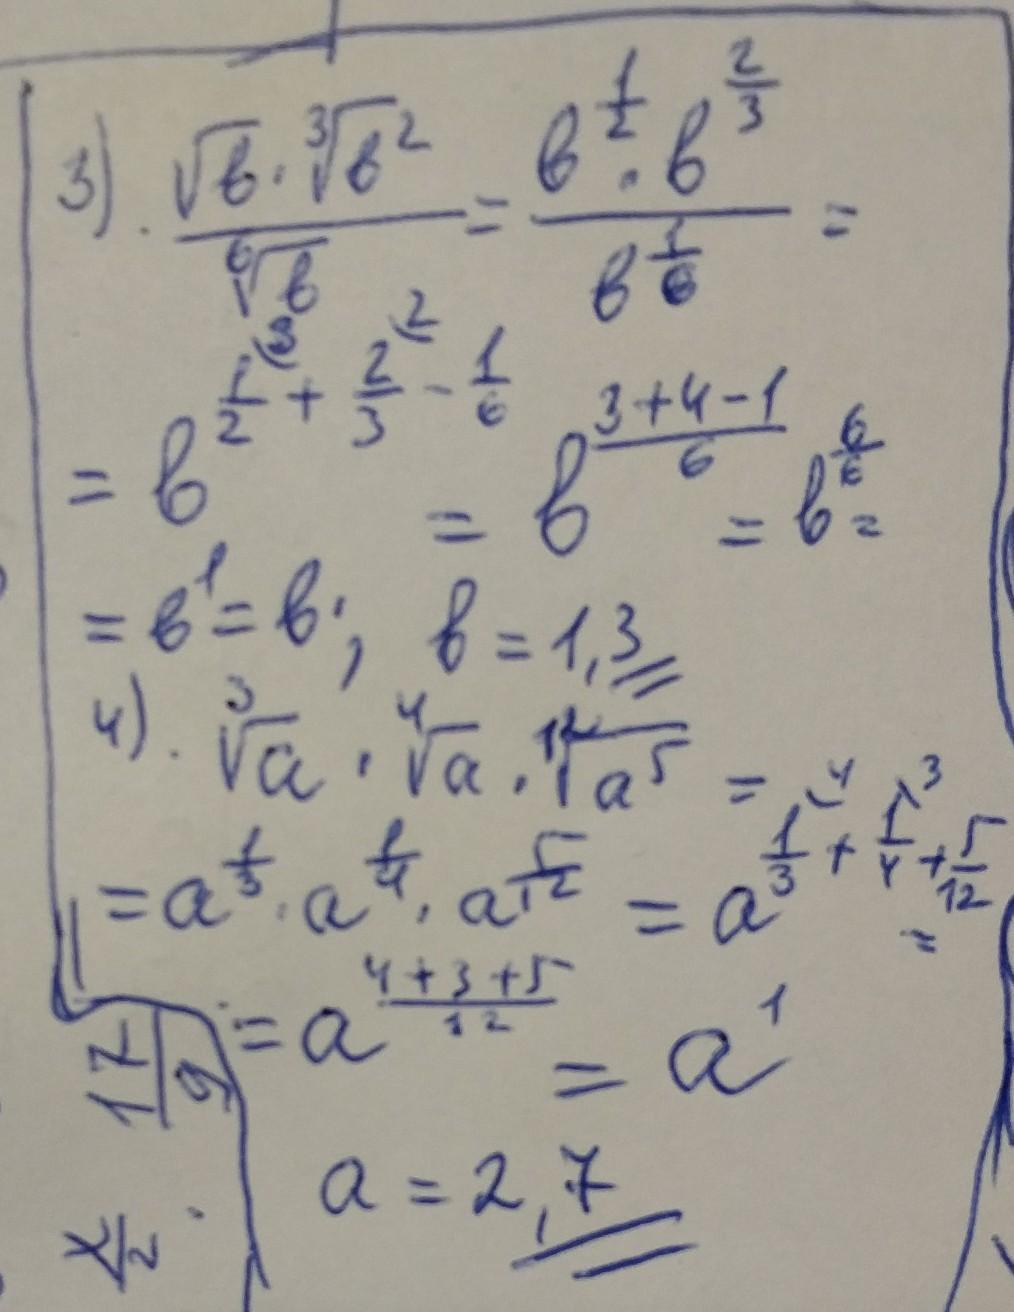 3). √b · ³√b² / ⁶√b = b^(1/2) · b^(2/3) / b^(1/6) =
= b^(1/2^(3) + 2/3^(2) - 1/6) = b^((3+4-1)/6) = b^(6/6) =
= b¹ = b; b = 1,3
4). ³√a · ⁴√a · ¹²√a⁵ =
= a^(1/3) · a^(1/4) · a^(5/12) = a^(1/3^(4) + 1/4^(3) + 5/12) =
= a^((4+3+5)/12) = a¹
a = 2,7
17/9